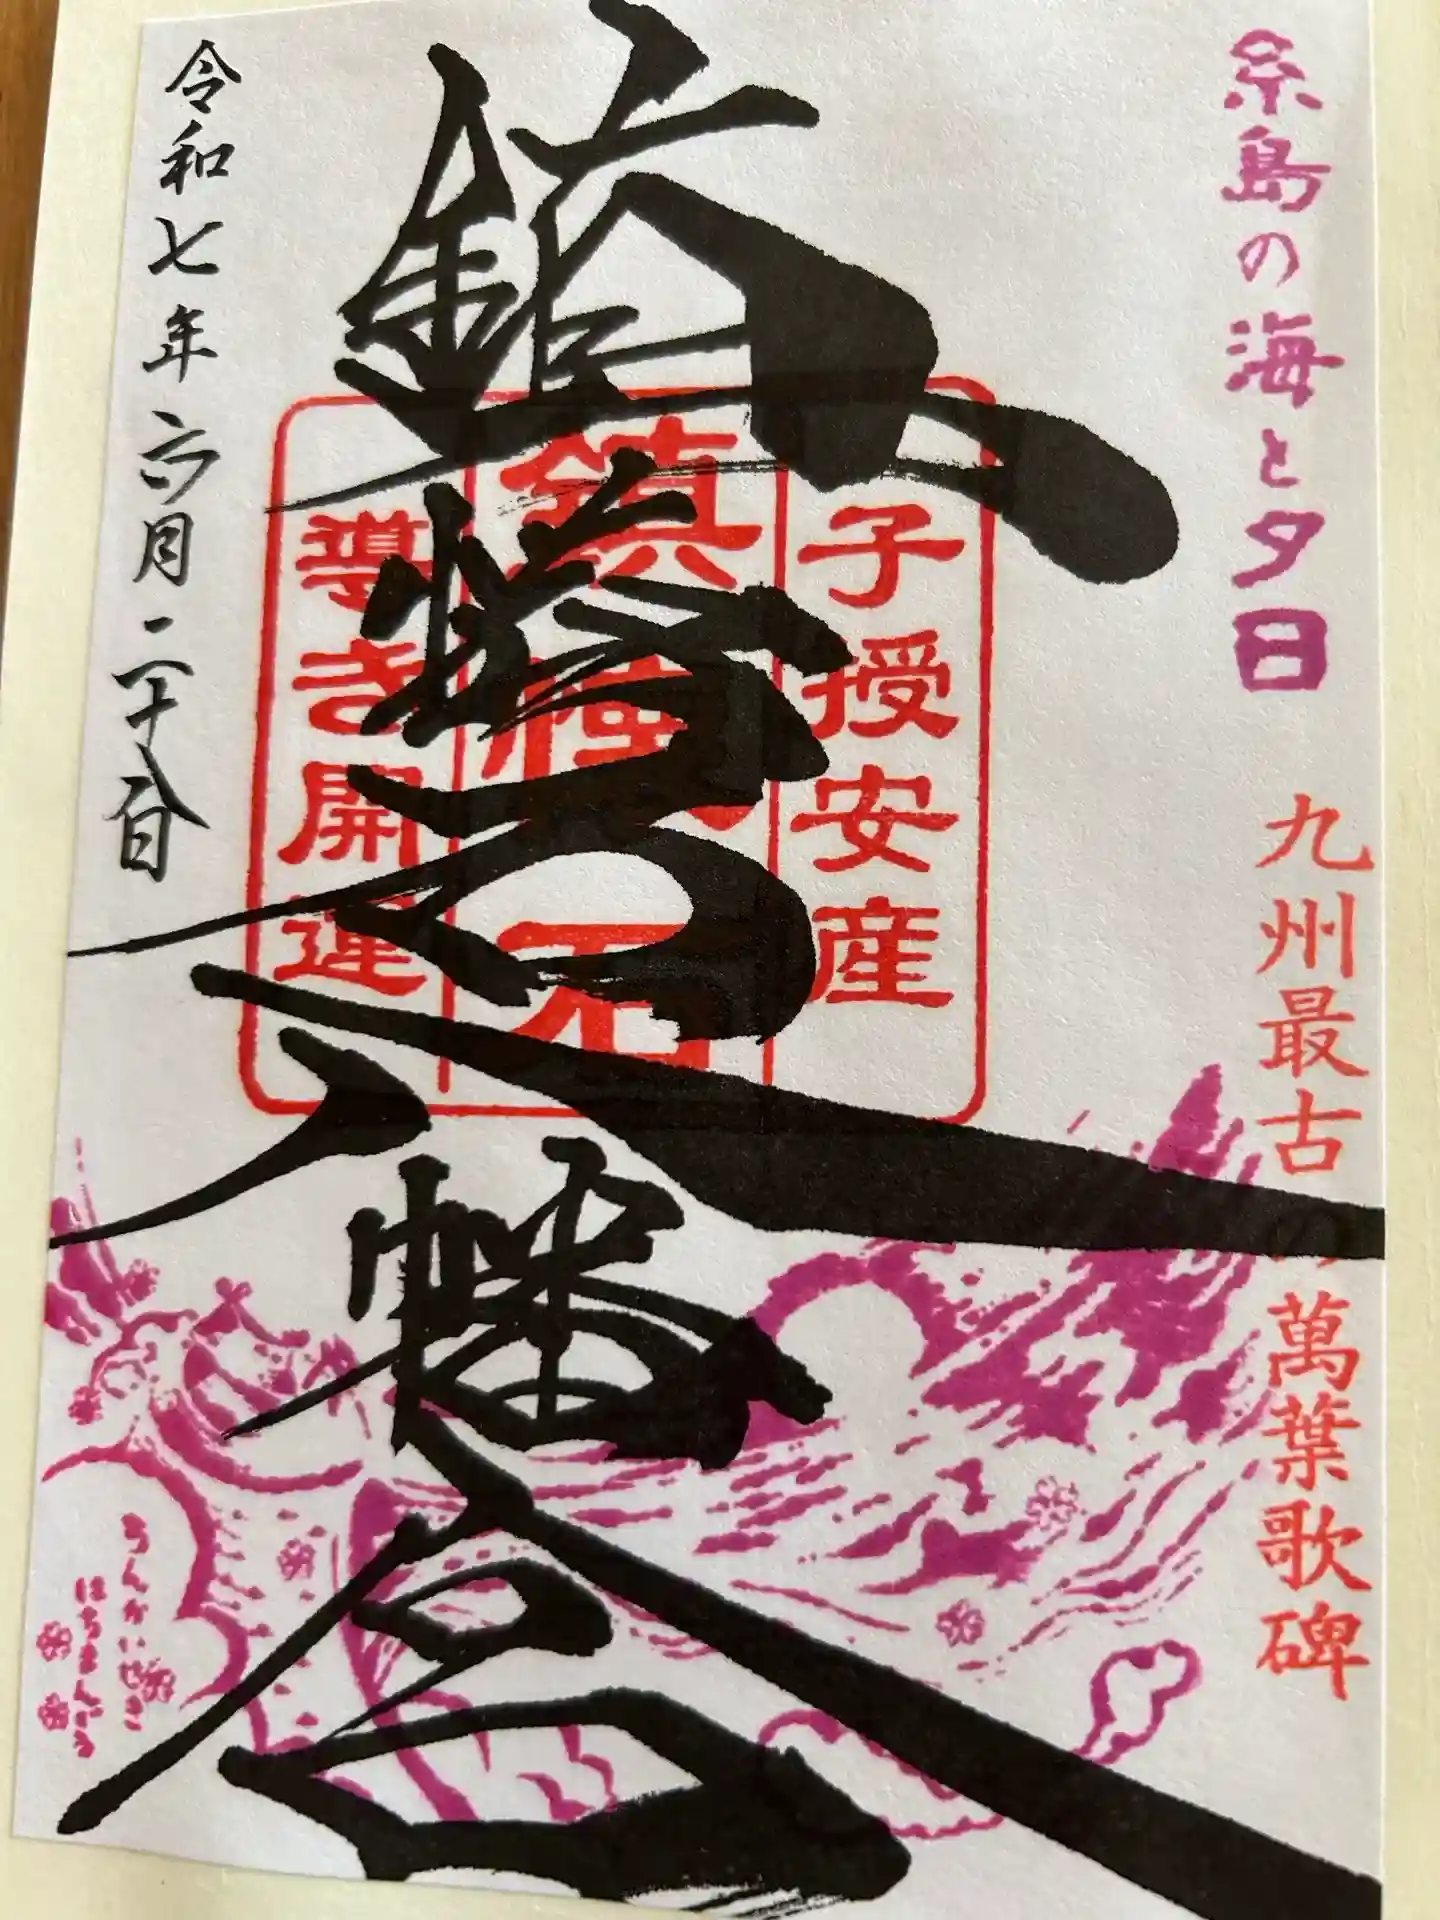 糸島の海と夕日
九州最古の萬葉歌碑
鎮懐石八幡宮
子授安産
鎮懐石
導き開運
令和七年六月二十八日
ちんかいせき
はちまんぐう